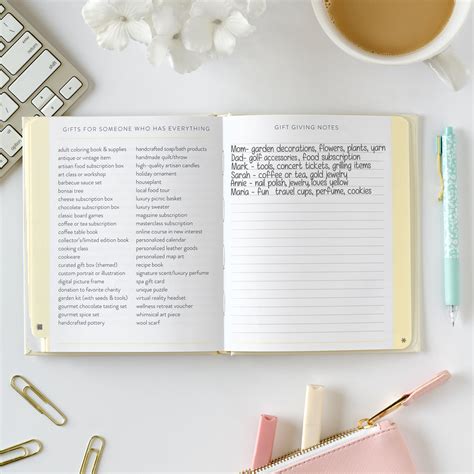 GIFTS FOR SOMEONE WHO HAS EVERYTHING
adult coloring book & supplies
antique or vintage item
artisan food subscription box
art class or workshop
barbecue sauce set
bonsai tree
cheese subscription box
chocolate subscription box
classic board games
coffee or tea subscription
coffee table book
collector's/limited edition book
cooking class
cookware
curated gift box (themed)
custom portrait or illustration
digital picture frame
donation to favorite charity
garden kit (with seeds & tools)
gourmet chocolate tasting set
gourmet spice set
handcrafted pottery
handcrafted soap/bath products
handmade quilt/throw
high-quality artisan candles
holiday ornament
houseplant
local food tour
local museum pass
luxury picnic basket
luxury sweater
magazine subscription
masterclass subscription
online course in new interest
personalized calendar
personalized leather goods
personalized map art
recipe book
signature scent/luxury perfume
spa gift card
unique puzzle
virtual reality headset
wellness retreat voucher
whimsical art piece
wool scarf
GIFT GIVING NOTES
Mom- garden decorations, flowers, plants, yarn
Dad- golf accessories, food subscription
Mark - tools, concert tickets, grilling items
Sarah - coffee or tea, gold jewelry
Annie - nail polish, jewelry, loves yellow
Maria - fun travel cups, perfume, cookies